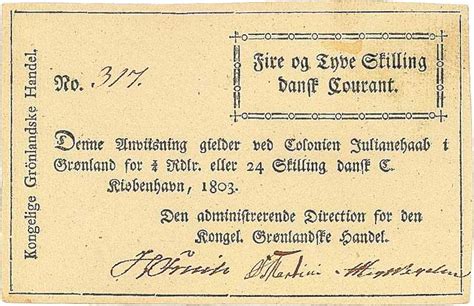 Kongelige Grönlandske Handel.
No. 317.
Fire og Tyve Skilling
dansk Courant.
Denne Anviisning gielder ved Colonien Julianehaab i
Grønland for ¼ Rdlr. eller 24 Skilling dansk C.
Kiøbenhavn, 1803.
Den administrerende Direction for den
Kongel. Grønlandske Handel.
Martini